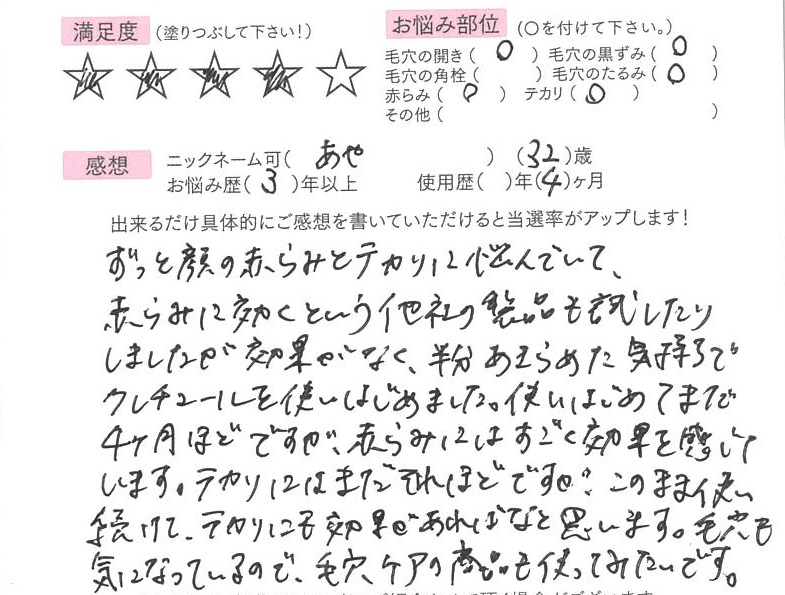 満足度 (塗りつぶして下さい!)
お悩み部位 (〇を付けて下さい。)
毛穴の開き( 〇 ) 毛穴の黒ずみ( 〇 )
毛穴の角栓( ) 毛穴のたるみ( 〇 )
赤らみ( 〇 ) テカリ( 〇 )
その他( )
感想 ニックネーム可( あや ) (32)歳
お悩み歴( 3 )年以上 使用歴( )年(4)ヶ月
出来るだけ具体的にご感想を書いていただけると当選率がアップします!
ずっと顔の赤らみとテカリに悩んでいて、
赤らみに効くという他社の製品も試したり
しましたが効果がなく、半分あきらめた気持ちで
クレチュールを使いはじめました。使いはじめてまだ
4ヶ月ほどですが、赤らみにはすごく効果を感じて
います。テカリにはまだそれほどですが、このまま使い
続けて、テカリにも効果があればなと思います。毛穴も
気になっているので、毛穴ケアの商品も使ってみたいです。